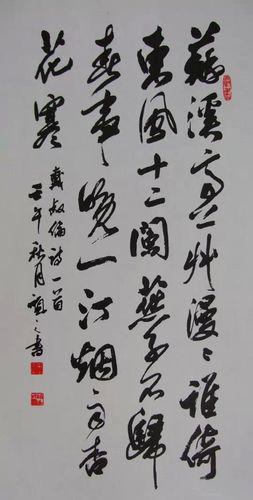 蘇溪亭上艸漫漫誰倚
東風十二闌燕子不歸
春事晚一汀烟雨杏
花寒
戴叔倫詩一首
壬午秋月之書